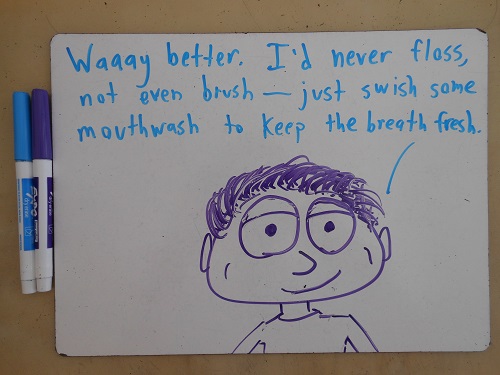 Waaay better. I'd never floss,
not even brush — just swish some
mouthwash to keep the breath fresh.
EXPO